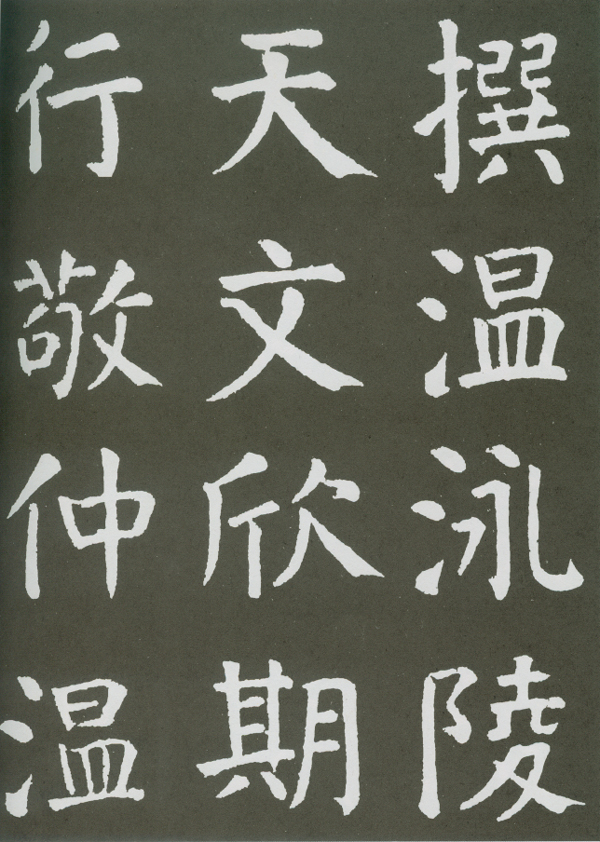 撰温陵
天文欣期
行敬仲温